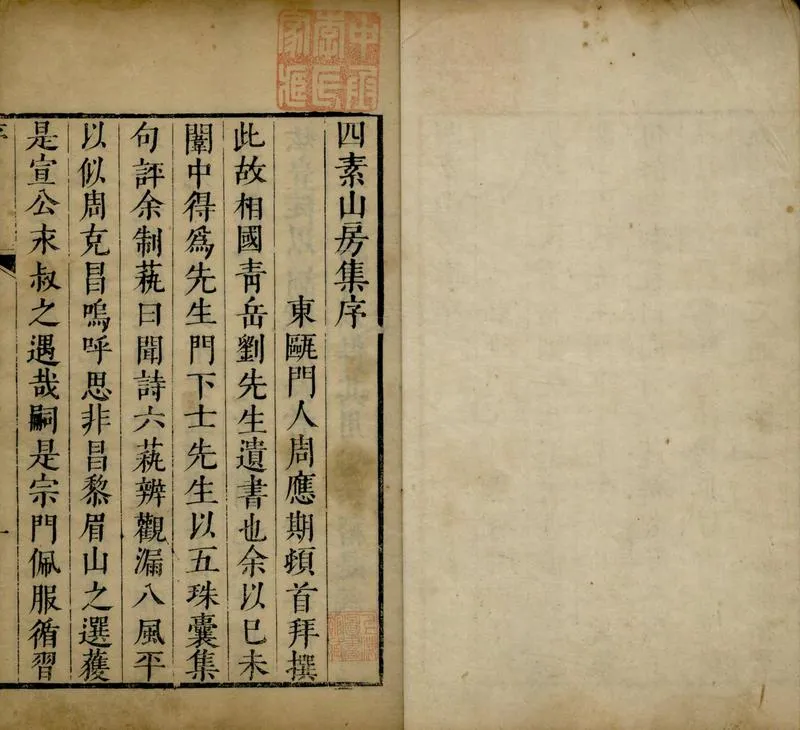 四素山房集序
東甌門人周應期頓首拜撰
此故相國青岳劉先生遺書也余以已未
闈中得爲先生門下士先生以五珠囊集
句評余制蓺曰聞詩六蓺辨觀漏八風平
以似周克昌嗚呼思非昌黎眉山之選獲
是宣公永叔之遇哉嗣是宗門佩服循習